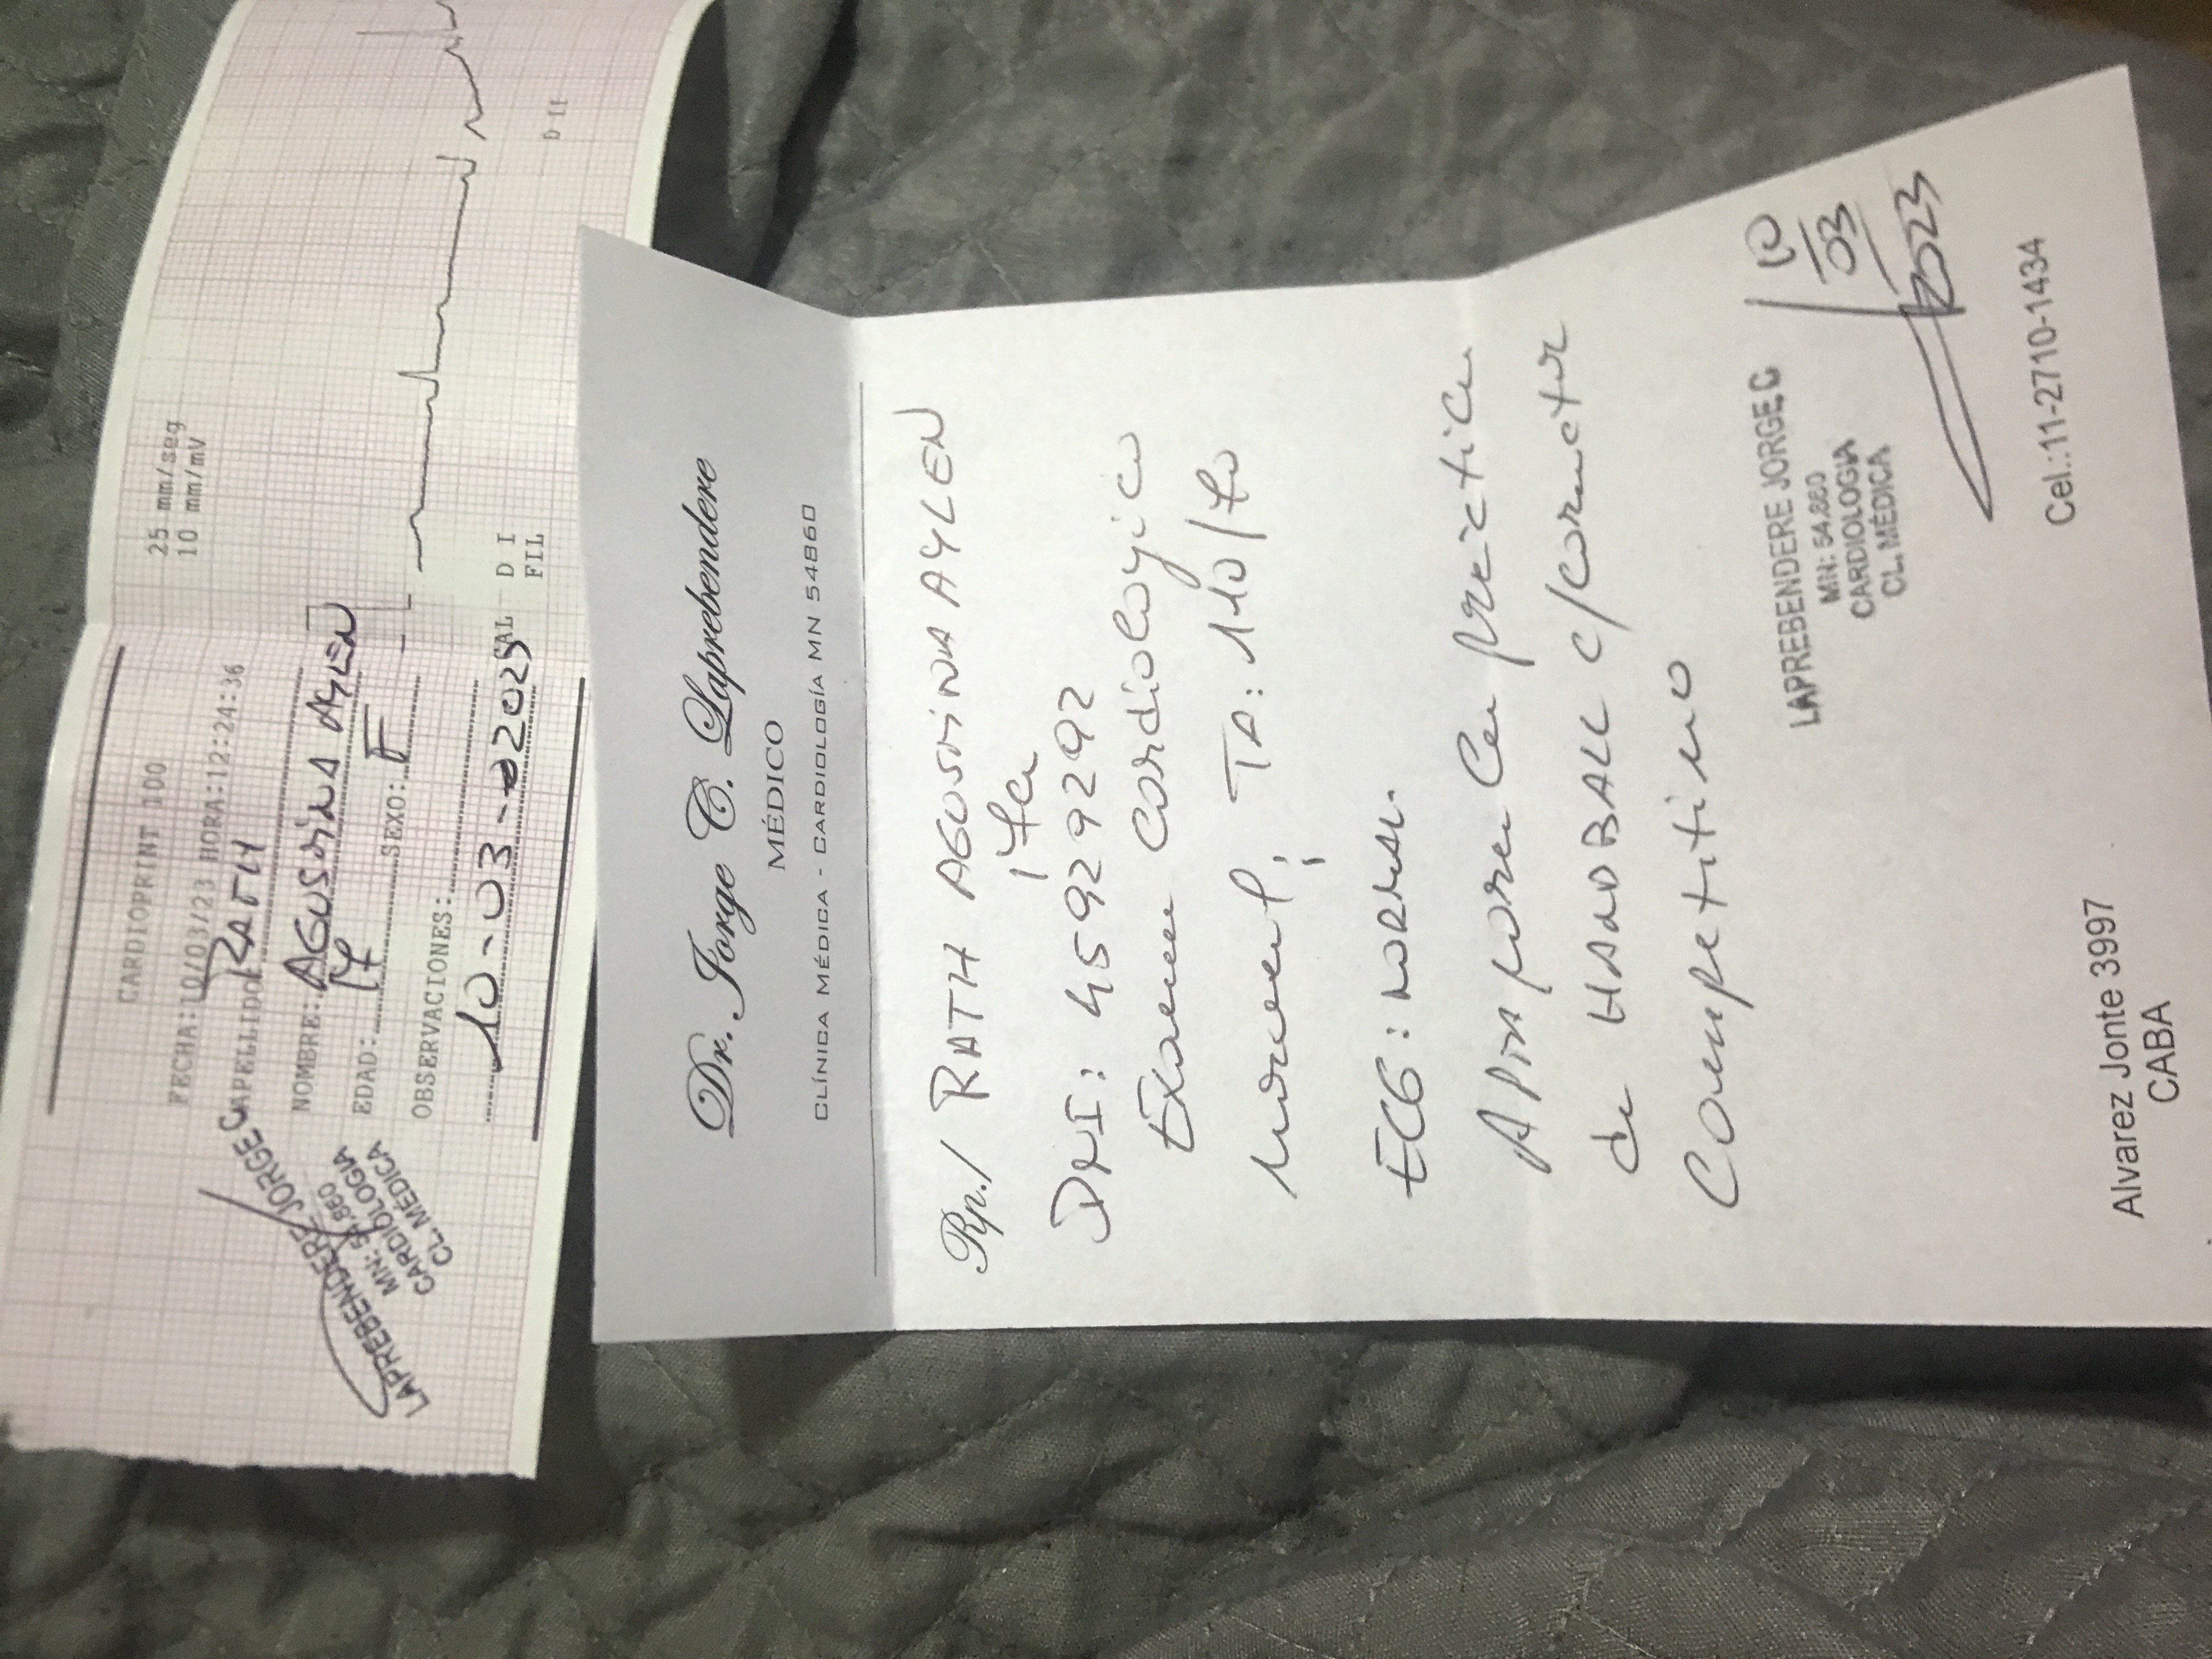 CARDIOPRINT 100
FECHA:10/03/23 HORA:12:24:36
APELLIDO: RATH
NOMBRE: AGUSTINA AYLEN
EDAD: 17 SEXO: F
OBSERVACIONES:
10-03-2023
LAPREBENDERE JORGE C
MN: 54.860
CARDIOLOGIA
CL. MÉDICA
25 mm/seg
10 mm/mV
CAL D I
FIL
D II
Dr. Jorge C. Laprebendere
MÉDICO
CLÍNICA MÉDICA - CARDIOLOGÍA MN 54860
Rp./ RATH AGUSTINA AYLEN
17a
DNI: 45929292
Examen Cardiologico
normal; TA: 110/70
ECG: NORMAL.
Apta para la práctica
de HANDBALL c/caracter
Competitivo
LAPREBENDERE JORGE C
MN: 54.860
CARDIOLOGIA
CL. MÉDICA
10/03/2023
Alvarez Jonte 3997 Cel.:11-2710-1434
CABA